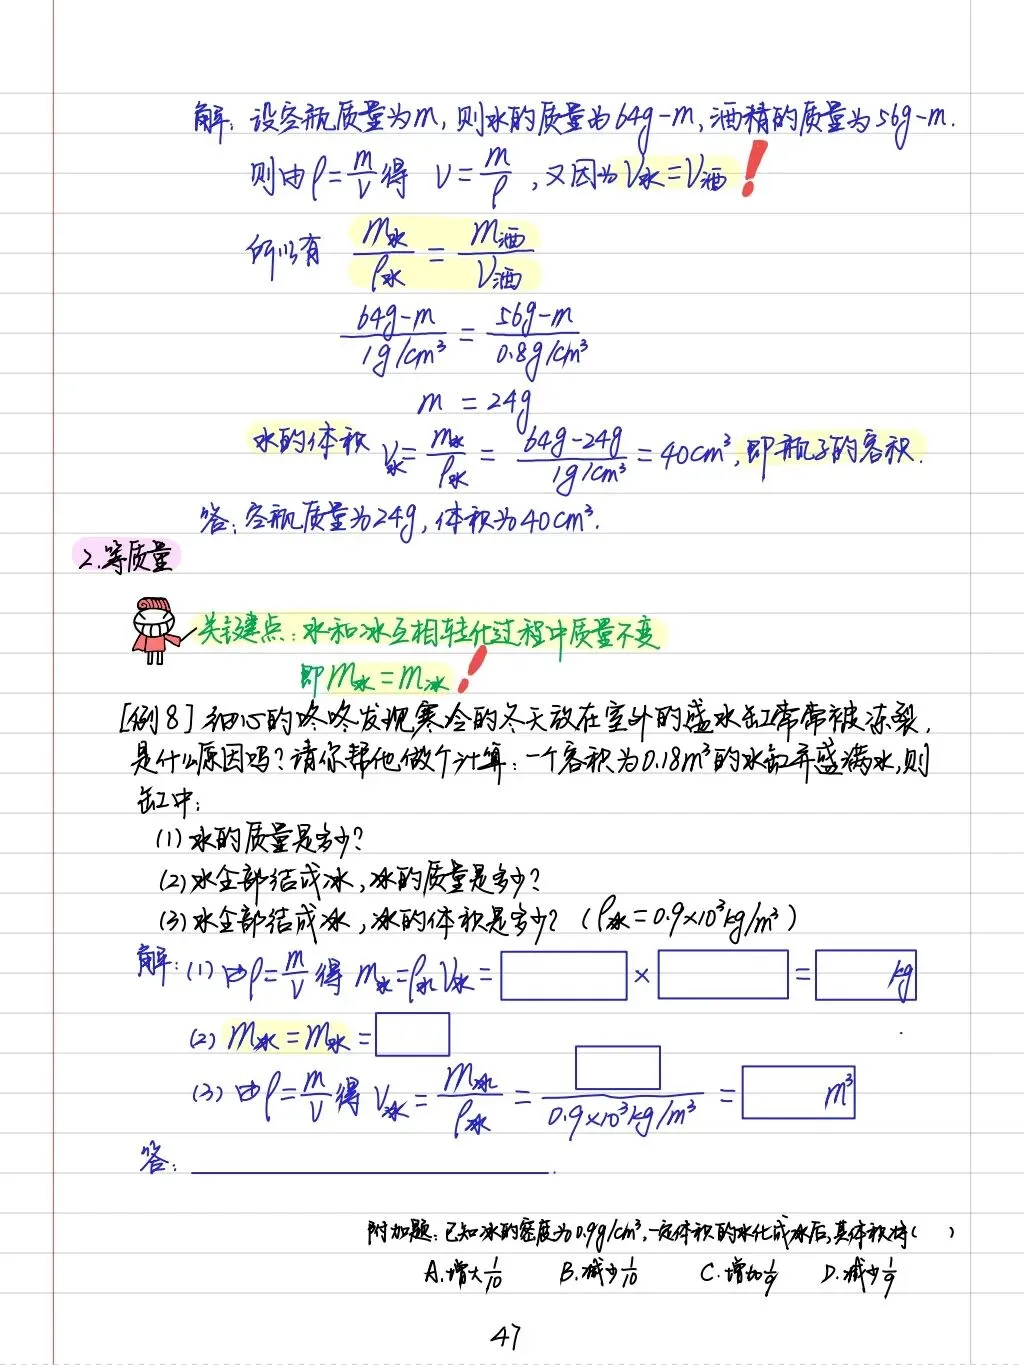 解:设空瓶质量为m,则水的质量为64g-m,酒精的质量为56g-m.
则由ρ=m/V得 V=m/ρ,又因为V水=V酒!
所以有 m水/ρ水=m酒/V酒
64g-m/1g/cm³=56g-m/0.8g/cm³
m=24g
水的体积 V水=m水/ρ水=64g-24g/1g/cm³=40cm³,即瓶子的容积.
答:空瓶质量为24g,体积为40cm³.
2.等质量
关键点:水和冰互相转化过程中质量不变
即m水=m冰!
[例8]细心的咚咚发现寒冷的冬天放在室外的盛水缸常常被冻裂,
是什么原因吗?请你帮他做个计算:一个容积为0.18m³的水缸并盛满水,则
缸中:
(1)水的质量是多少?
(2)水全部结成冰,冰的质量是多少?
(3)水全部结成冰,冰的体积是多少?(ρ冰=0.9×10³kg/m³)
解:(1)由ρ=m/V得 m水=ρ水V水= × = kg
(2)m冰=m水=
(3)由ρ=m/V得 V冰=m冰/ρ冰= /0.9×10³kg/m³= m³
答: .
附加题:已知冰的密度为0.9g/cm³,一定体积的水化成冰后,其体积将( )
A.增大1/10 B.减少1/10 C.增加1/9 D.减少1/9
47